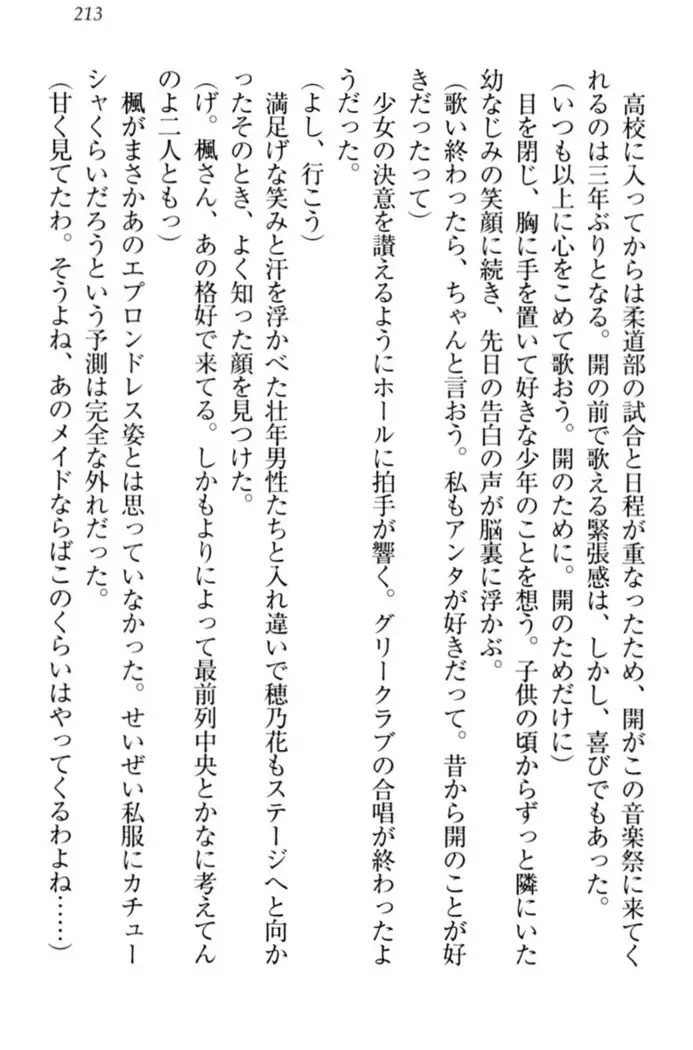 213
高校に入ってからは柔道部の試合と日程が重なったため、開がこの音楽祭に来てく
れるのは三年ぶりとなる。開の前で歌える緊張感は、しかし、喜びでもあった。
(いつも以上に心をこめて歌おう。開のために。開のためだけに)
目を閉じ、胸に手を置いて好きな少年のことを想う。子供の頃からずっと隣にいた
幼なじみの笑顔に続き、先日の告白の声が脳裏に浮かぶ。
(歌い終わったら、ちゃんと言おう。私もアンタが好きだって。昔から開のことが好
きだったって)
少女の決意を讃えるようにホールに拍手が響く。グリークラブの合唱が終わったよ
うだった。
(よし、行こう)
満足げな笑みと汗を浮かべた壮年男性たちと入れ違いで穂乃花もステージへと向か
ったそのとき、よく知った顔を見つけた。
(げ。楓さん、あの格好で来てる。しかもよりによって最前列中央とかなに考えてん
のよ二人ともっ)
楓がまさかあのエプロンドレス姿とは思っていなかった。せいぜい私服にカチュー
シャくらいだろうという予測は完全な外れだった。
(甘く見てたわ。そうよね、あのメイドならばこのくらいはやってくるわよね……)